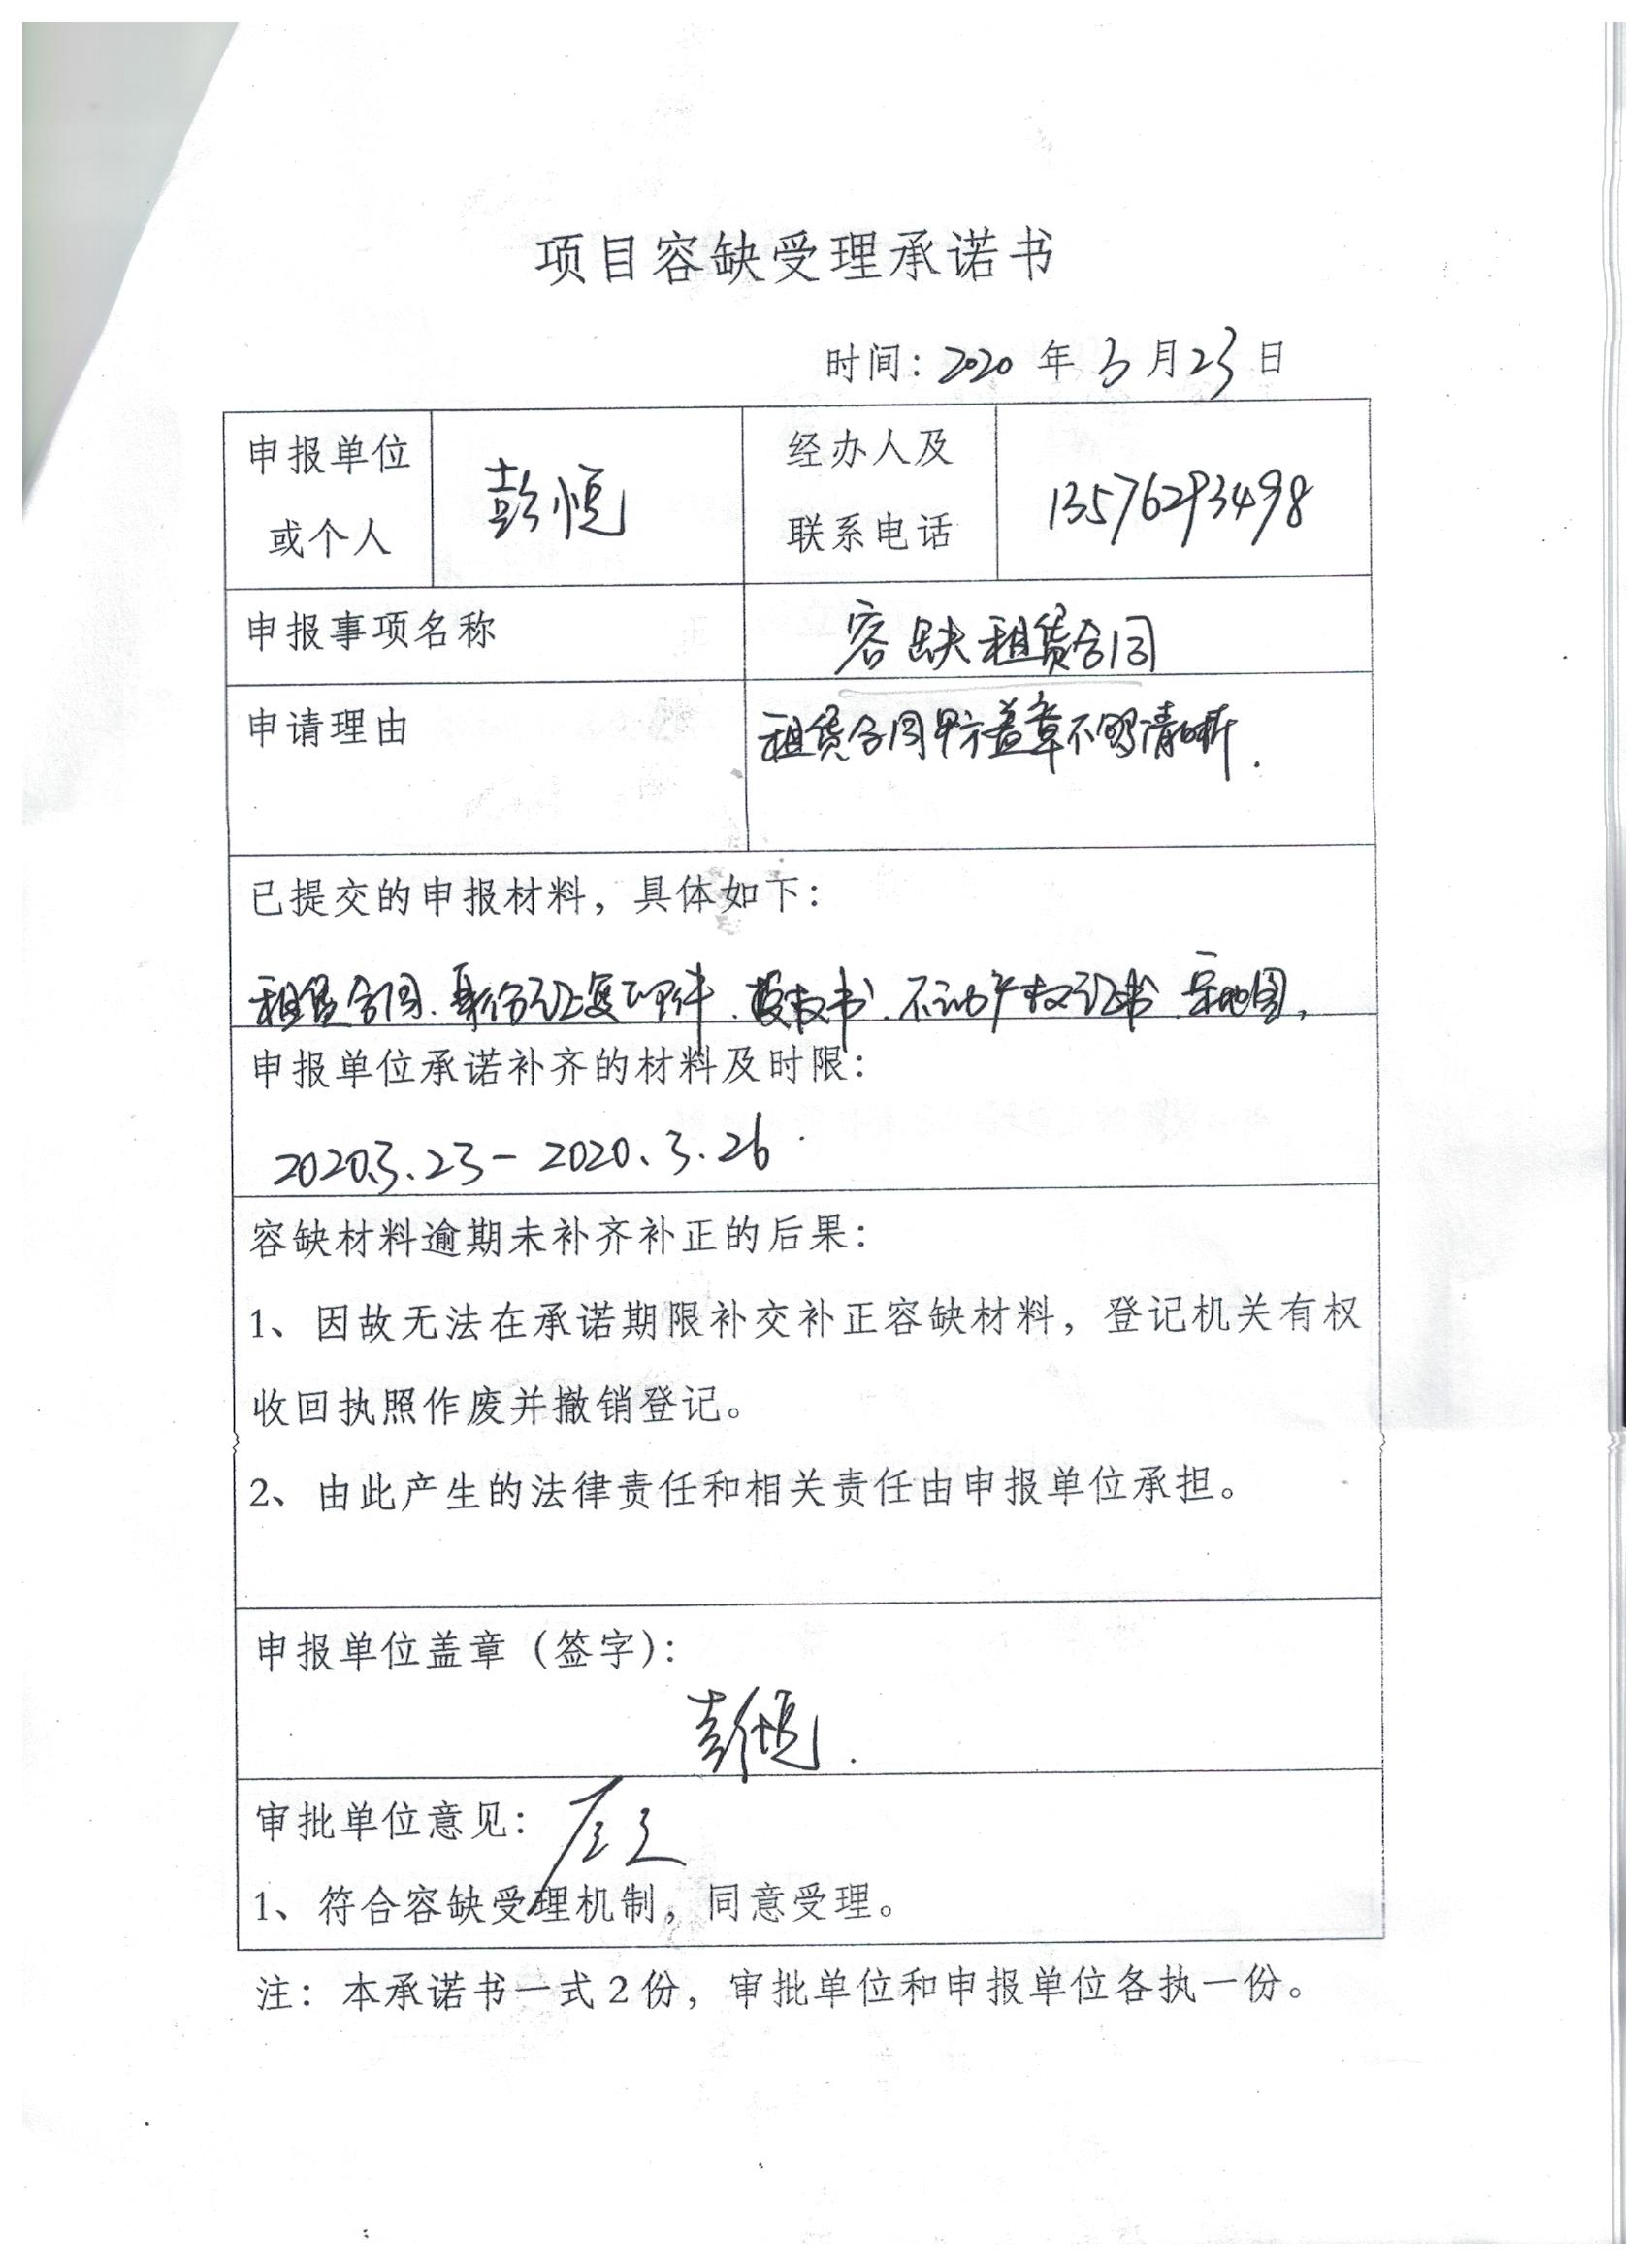 项目容缺受理承诺书
时间：2020 年 3 月 23 日
申报单位
或个人
彭恒
经办人及
联系电话
13576293498
申报事项名称
容缺租赁合同
申请理由
租赁合同甲方盖章不够清晰.
已提交的申报材料，具体如下：
租赁合同、身份证复印件、授权书、不动产权证书、宗地图,
申报单位承诺补齐的材料及时限：
2020.3.23－2020.3.26
容缺材料逾期未补齐补正的后果：
1、因故无法在承诺期限补交补正容缺材料，登记机关有权
收回执照作废并撤销登记。
2、由此产生的法律责任和相关责任由申报单位承担。
申报单位盖章（签字）：
彭恒.
审批单位意见：
1、符合容缺受理机制，同意受理。
注：本承诺书一式2份，审批单位和申报单位各执一份。